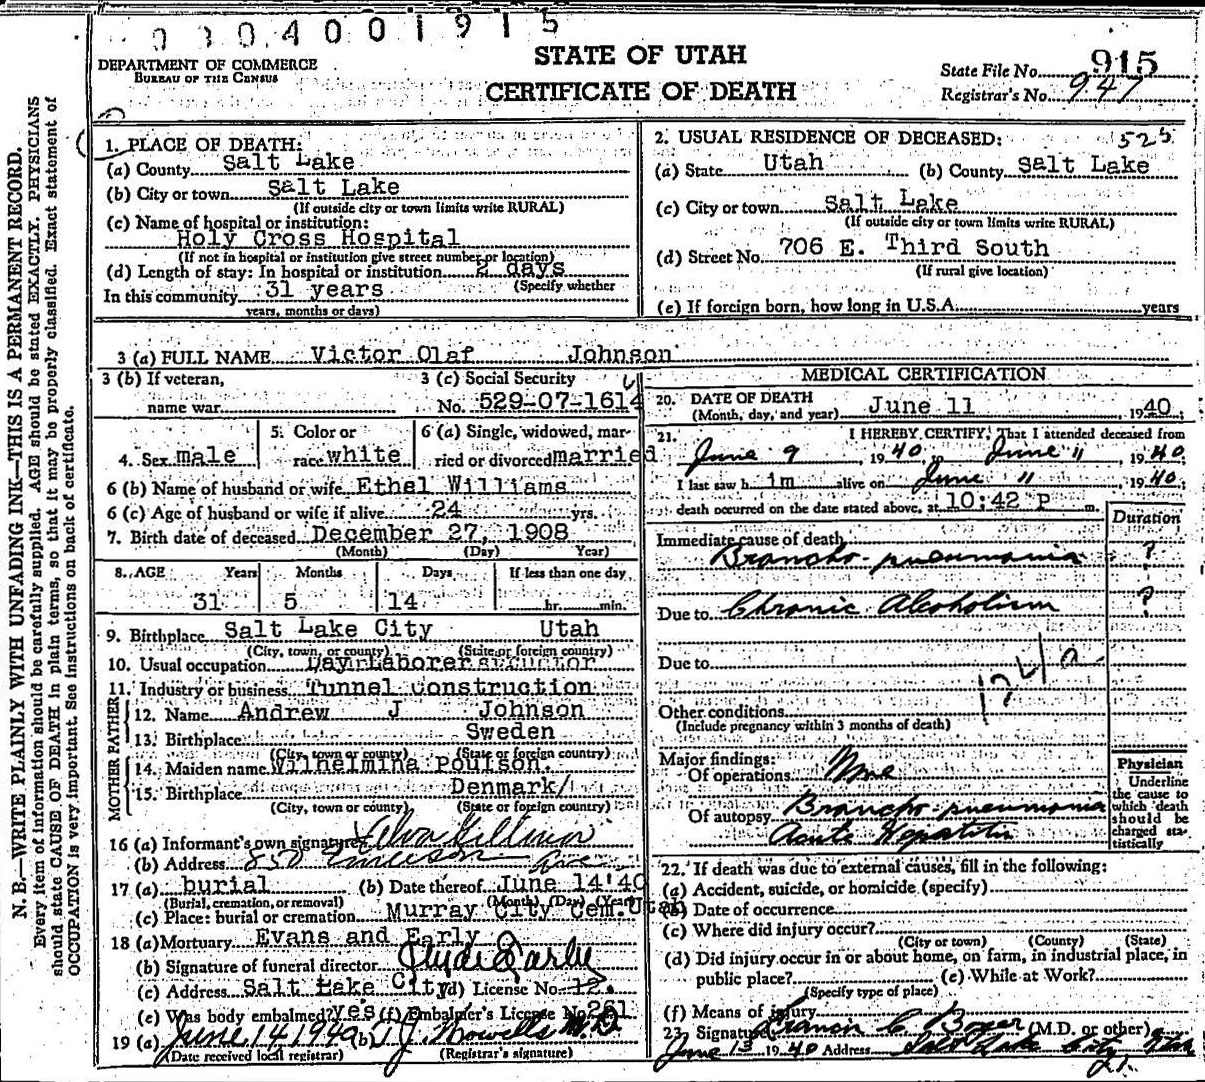 0 3 0 4 0 0 1 9 1 5
DEPARTMENT OF COMMERCE
BUREAU OF THE CENSUS
STATE OF UTAH
CERTIFICATE OF DEATH
State File No. 915
Registrar's No. 947
N. B.—WRITE PLAINLY WITH UNFADING INK—THIS IS A PERMANENT RECORD.
Every item of information should be carefully supplied. AGE should be stated EXACTLY. PHYSICIANS
should state CAUSE OF DEATH in plain terms, so that it may be properly classified. Exact statement of
OCCUPATION is very important. See instructions on back of certificate.
1. PLACE OF DEATH:
(a) County Salt Lake
(b) City or town Salt Lake
(If outside city or town limits write RURAL)
(c) Name of hospital or institution:
Holy Cross Hospital
(If not in hospital or institution give street number or location)
(d) Length of stay: In hospital or institution 2 days
(Specify whether
In this community 31 years
years, months or days)
2. USUAL RESIDENCE OF DECEASED: 525
(a) State Utah (b) County Salt Lake
(c) City or town Salt Lake
(If outside city or town limits write RURAL)
(d) Street No. 706 E. Third South
(If rural give location)
(e) If foreign born, how long in U.S.A. years
3 (a) FULL NAME Victor Olaf Johnson
3 (b) If veteran,
name war
3 (c) Social Security
No. 529-07-1614
4. Sex male
5. Color or
race white
6 (a) Single, widowed, mar-
ried or divorced married
6 (b) Name of husband or wife Ethel Williams
6 (c) Age of husband or wife if alive 24 yrs.
7. Birth date of deceased December 27, 1908
(Month) (Day) Year)
8. AGE Years Months Days If less than one day
31 5 14 hr. min.
9. Birthplace Salt Lake City Utah
(City, town, or county) (State or foreign country)
10. Usual occupation Day Laborer
11. Industry or business Tunnel construction
FATHER
12. Name Andrew J Johnson
13. Birthplace Sweden
(City, town or county) (State or foreign country)
MOTHER
14. Maiden name Wilhelmina Poulson.
15. Birthplace Denmark
(City, town or county) (State or foreign country)
16 (a) Informant's own signature
(b) Address 850 Emerson Ave
17 (a) burial (b) Date thereof June 14 '40
(Burial, cremation, or removal) (Month) (Day) (Year)
(c) Place: burial or cremation Murray City Cem. Utah
18 (a) Mortuary Evans and Early
(b) Signature of funeral director Clyde Early
(c) Address Salt Lake City (d) License No. 12.
(e) Was body embalmed? yes (f) Embalmer's License No. 261
19 (a) June 14 1940 (b) T. J. Howells M.D.
(Date received local registrar) (Registrar's signature)
MEDICAL CERTIFICATION
20. DATE OF DEATH
(Month, day, and year) June 11 1940
21. I HEREBY CERTIFY, That I attended deceased from
June 9 1940, to June 11 1940
I last saw him alive on June 11 1940
death occurred on the date stated above, at 10:42 P m.
Duration
Immediate cause of death
Broncho pneumonia ?
Due to Chronic Alcoholism ?
Due to
Other conditions
(Include pregnancy within 3 months of death)
Major findings:
Of operations None
Of autopsy Broncho pneumonia
Acute Hepatitis
Physician
Underline
the cause to
which death
should be
charged sta-
tistically
22. If death was due to external causes, fill in the following:
(a) Accident, suicide, or homicide (specify)
(b) Date of occurrence
(c) Where did injury occur?
(City or town) (County) (State)
(d) Did injury occur in or about home, on farm, in industrial place, in
public place? (e) While at Work?
(Specify type of place)
(f) Means of injury
23. Signature Francis C. Boyer (M.D. or other)
June 13 1940 Address Salt Lake City, Utah